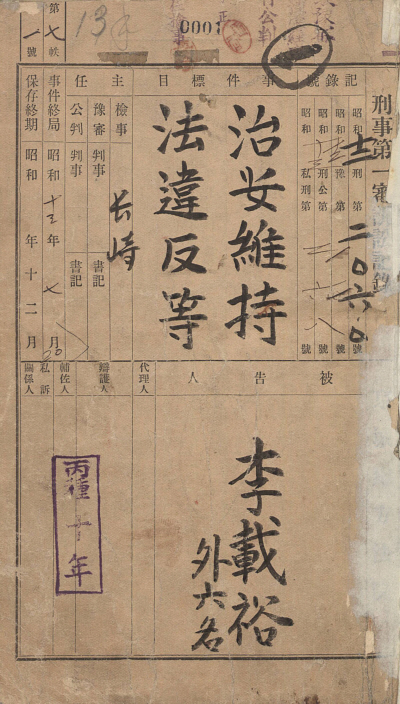 刑事第一審訴訟記錄
記錄號
昭和十三刑第二〇六〇號
昭和 豫第 號
昭和 刑公第 號
昭和 私刑第 號
事件標目
治安維持
法違反等
主任
檢事 長崎
豫審判事 書記
公判判事 書記
事件終局 昭和十三年七月20
保存終期 昭和 年十二月
第七帙
一號
13
0001
1
被告人
李載裕
外六名
代理人
辯護人
輔佐人
私訴關係人
丙種十年